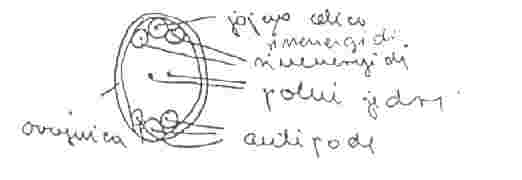 jajčno celico
sinergidi
sinergidi
polni jedri
ovojnica
antipode